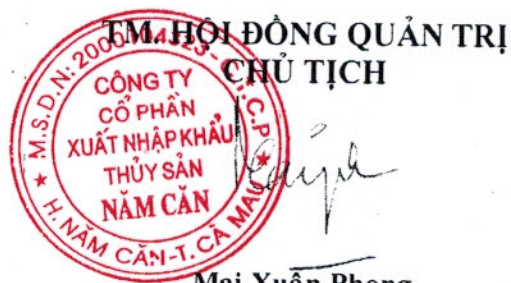 TM. HỘI ĐỒNG QUẢN TRỊ
CHỦ TỊCH
M.S.D.N: C.P
CÔNG TY
CỔ PHẦN
XUẤT NHẬP KHẨU
THỦY SẢN
NĂM CĂN
H. NĂM CĂN-T. CÀ MAU
Mai Xuân Phong